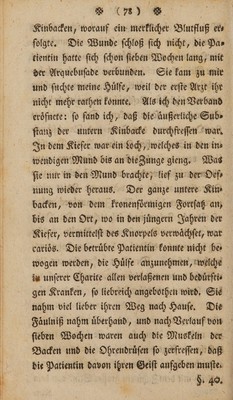 ❋ (78) ❋
Kinbacken, worauf ein merklicher Blutfluß er-
folgte. Die Wunde schloß sich nicht, die Pa-
tientin hatte sich schon sieben Wochen lang, mit
der Arquebusade verbunden. Sie kam zu mir
und suchte meine Hülfe, weil der erste Arzt ihr
nicht mehr rathen konnte. Als ich den Verband
eröfnete: so fand ich, daß die äußerliche Sub-
stanz der untern Kinbacke durchfressen war.
In dem Kiefer war ein Loch, welches in den in-
wendigen Mund bis an die Zunge gieng. Was
sie nur in den Mund brachte, lief zu der Oef-
nung wieder heraus. Der ganze untere Kin-
backen, von dem kronenförmigen Fortsatz an,
bis an den Ort, wo in den jüngern Jahren der
Kiefer, vermittelst des Knorpels verwächset, war
cariös. Die betrübte Patientin konnte nicht be-
wogen werden, die Hülfe anzunehmen, welche
in unserer Charite allen verlaßenen und bedürfti-
gen Kranken, so liebreich angebothen wird. Sie
nahm viel lieber ihren Weg nach Hause. Die
Fäulniß nahm überhand, und nach Verlauf von
sieben Wochen waren auch die Muskeln der
Backen und die Ohrendrüsen so zerfressen, daß
die Patientin davon ihren Geist aufgeben muste.
§. 40.